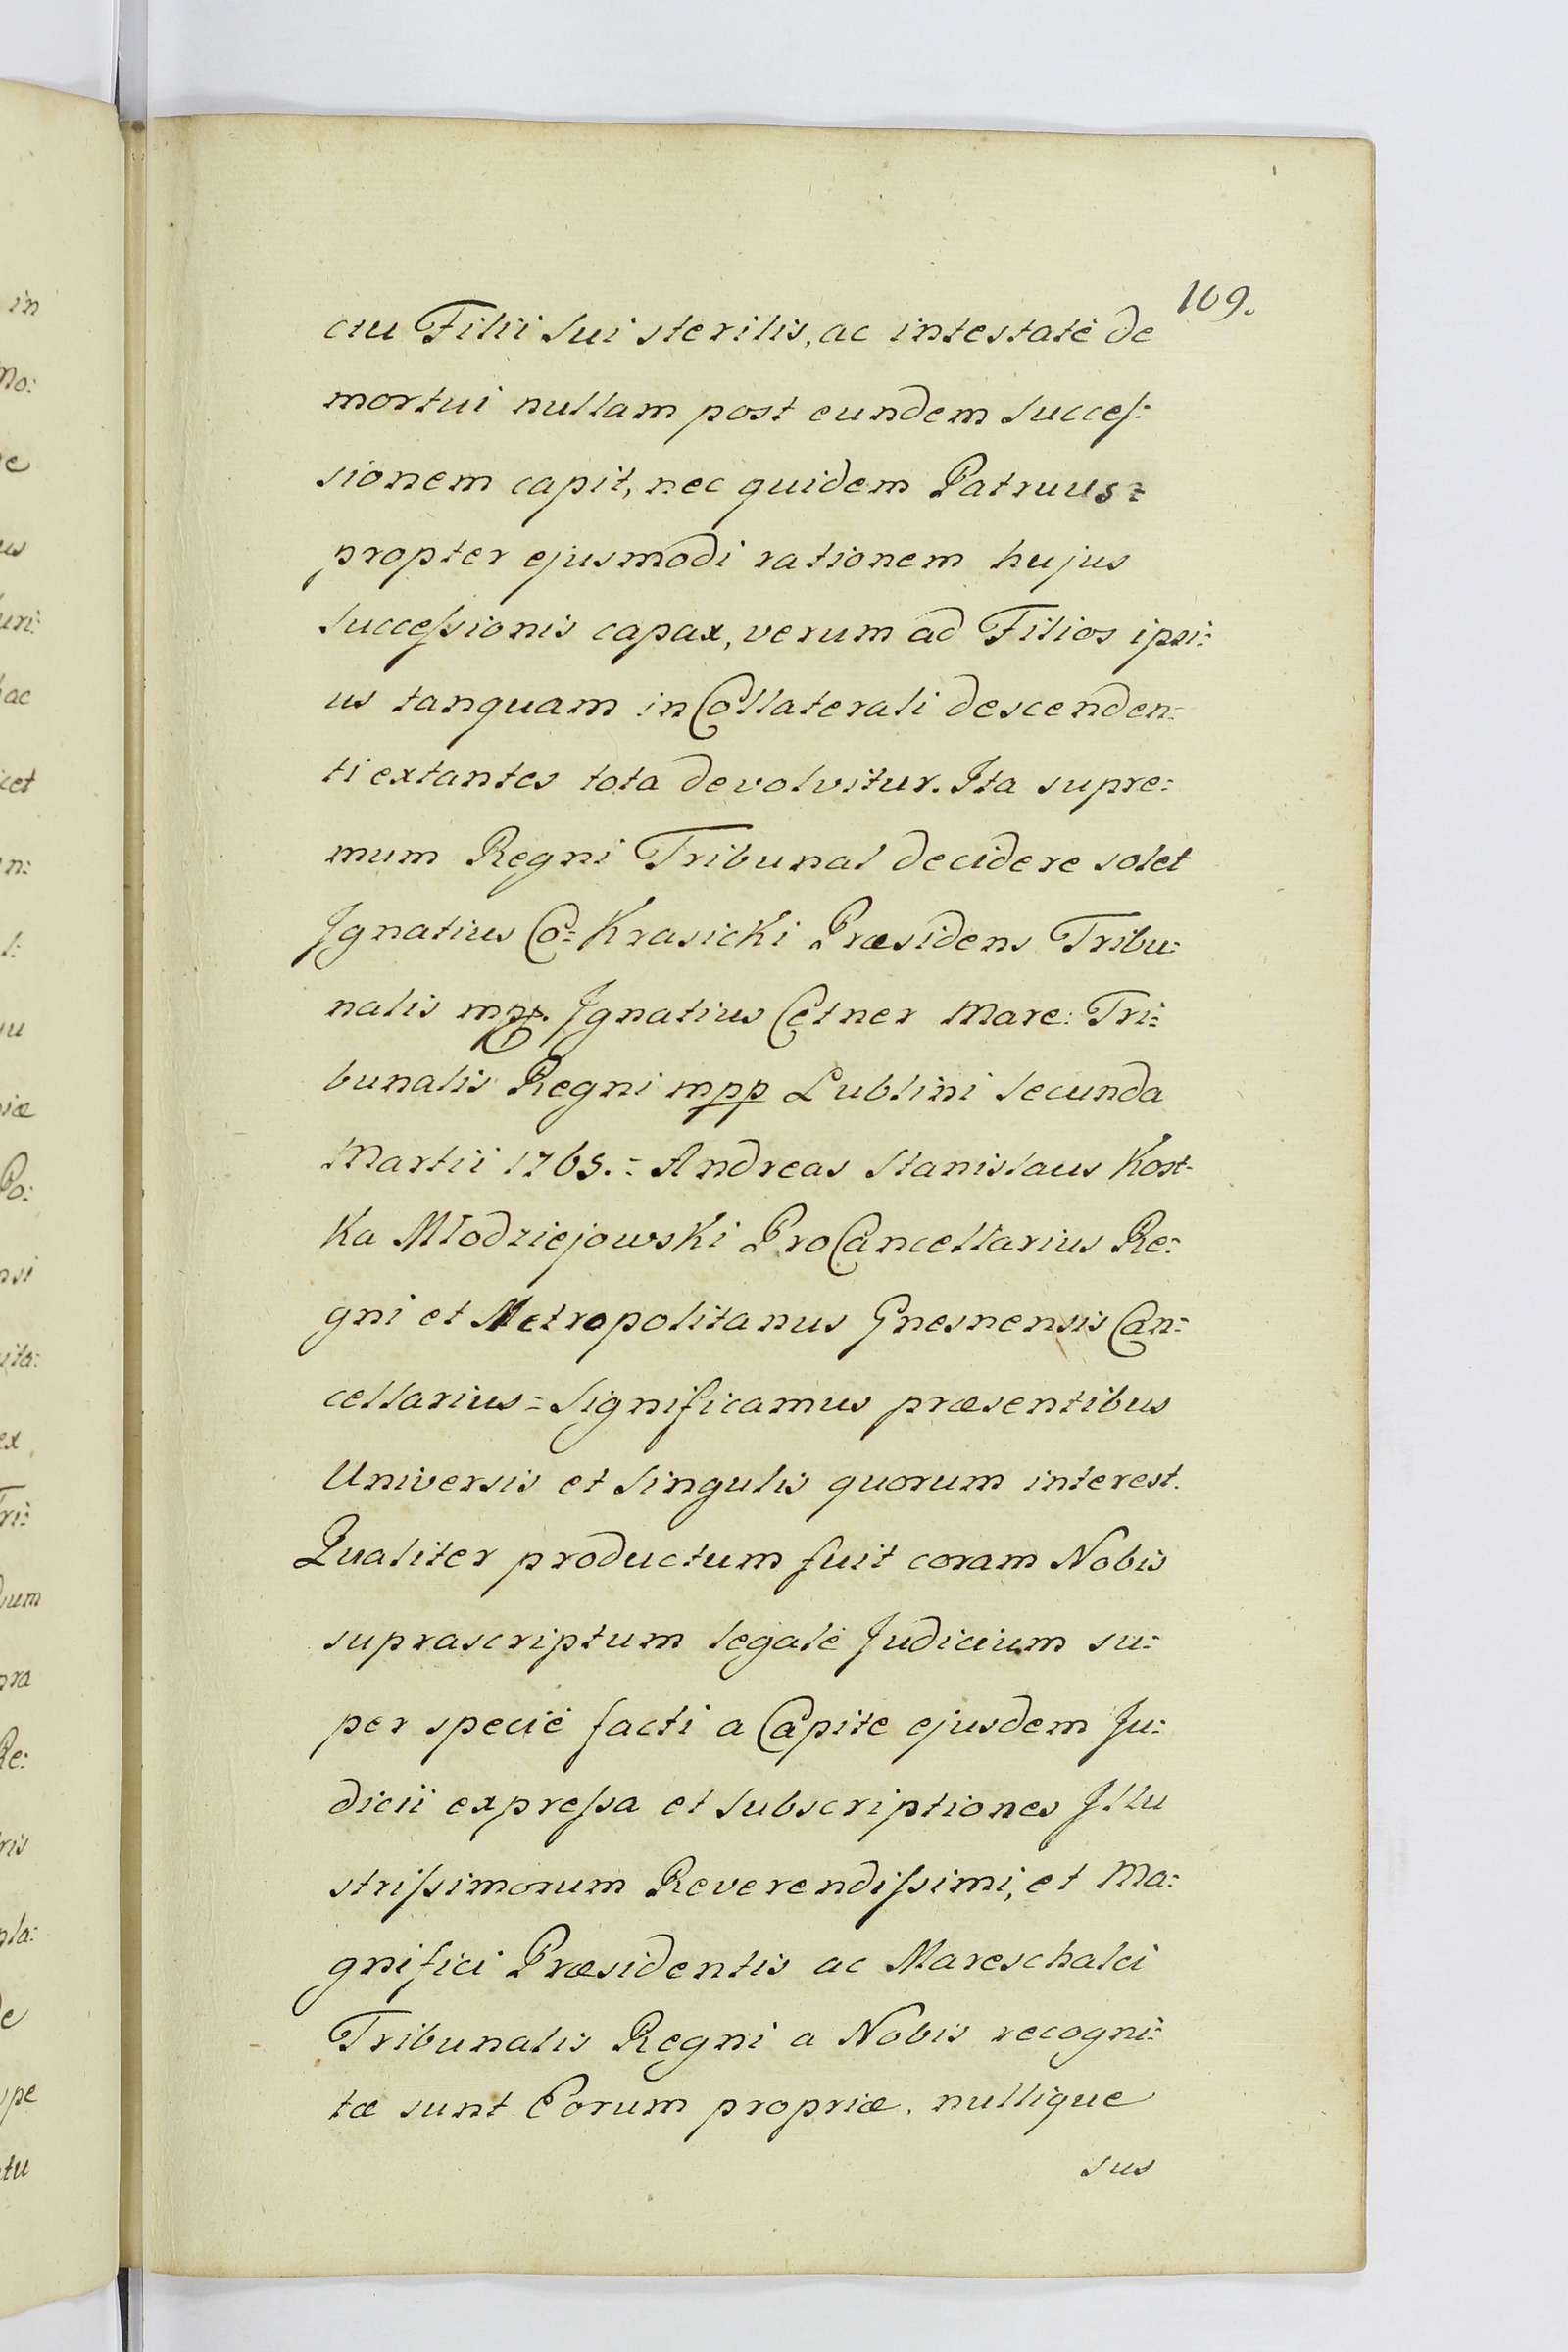 109.
ctu Filii sui sterilis, ac intestatè de
mortui nullam post eundem succeſ:
sionem capit, nec quidem Patruus=
propter ejusmodi rationem hujus
succeſsionis capax, verum ad Filios ipsi:
us tanquam in Collaterali descenden:
ti extantes tota devolvitur. Ita supre:
mum Regni Tribunal decidere solet
Ignatius Co: Krasicki Præsidens Tribu:
nalis mpp. Ignatius Cetner Mare: Tri:
bunalis Regni mpp Lublini secunda
Martii 1765.= Andreas Stanislaus Kost-
ka Młodziejowski ProCancellarius Re:
gni et Metropolitanus Gnesnensis Can:
cellarius= Significamus præsentibus
Universis et singulis quorum interest.
Qualiter productum fuit coram Nobis
suprascriptum legalè Judicium su:
per speciè facti a Capite ejusdem Ju:
dicii expreſsa et subscriptiones Illu
striſsimorum Reverendiſsimi, et Ma:
gnifici Præsidentis ac Mareschalci
Tribunalis Regni a Nobis recogni:
tæ sunt Eorum propriæ. nullique
sus
in
Mo:
uri:
hac
cet
n:
l:
Po:
nsi
uita:
ex
Tri:
pra
Re:
ris
nla:
ope